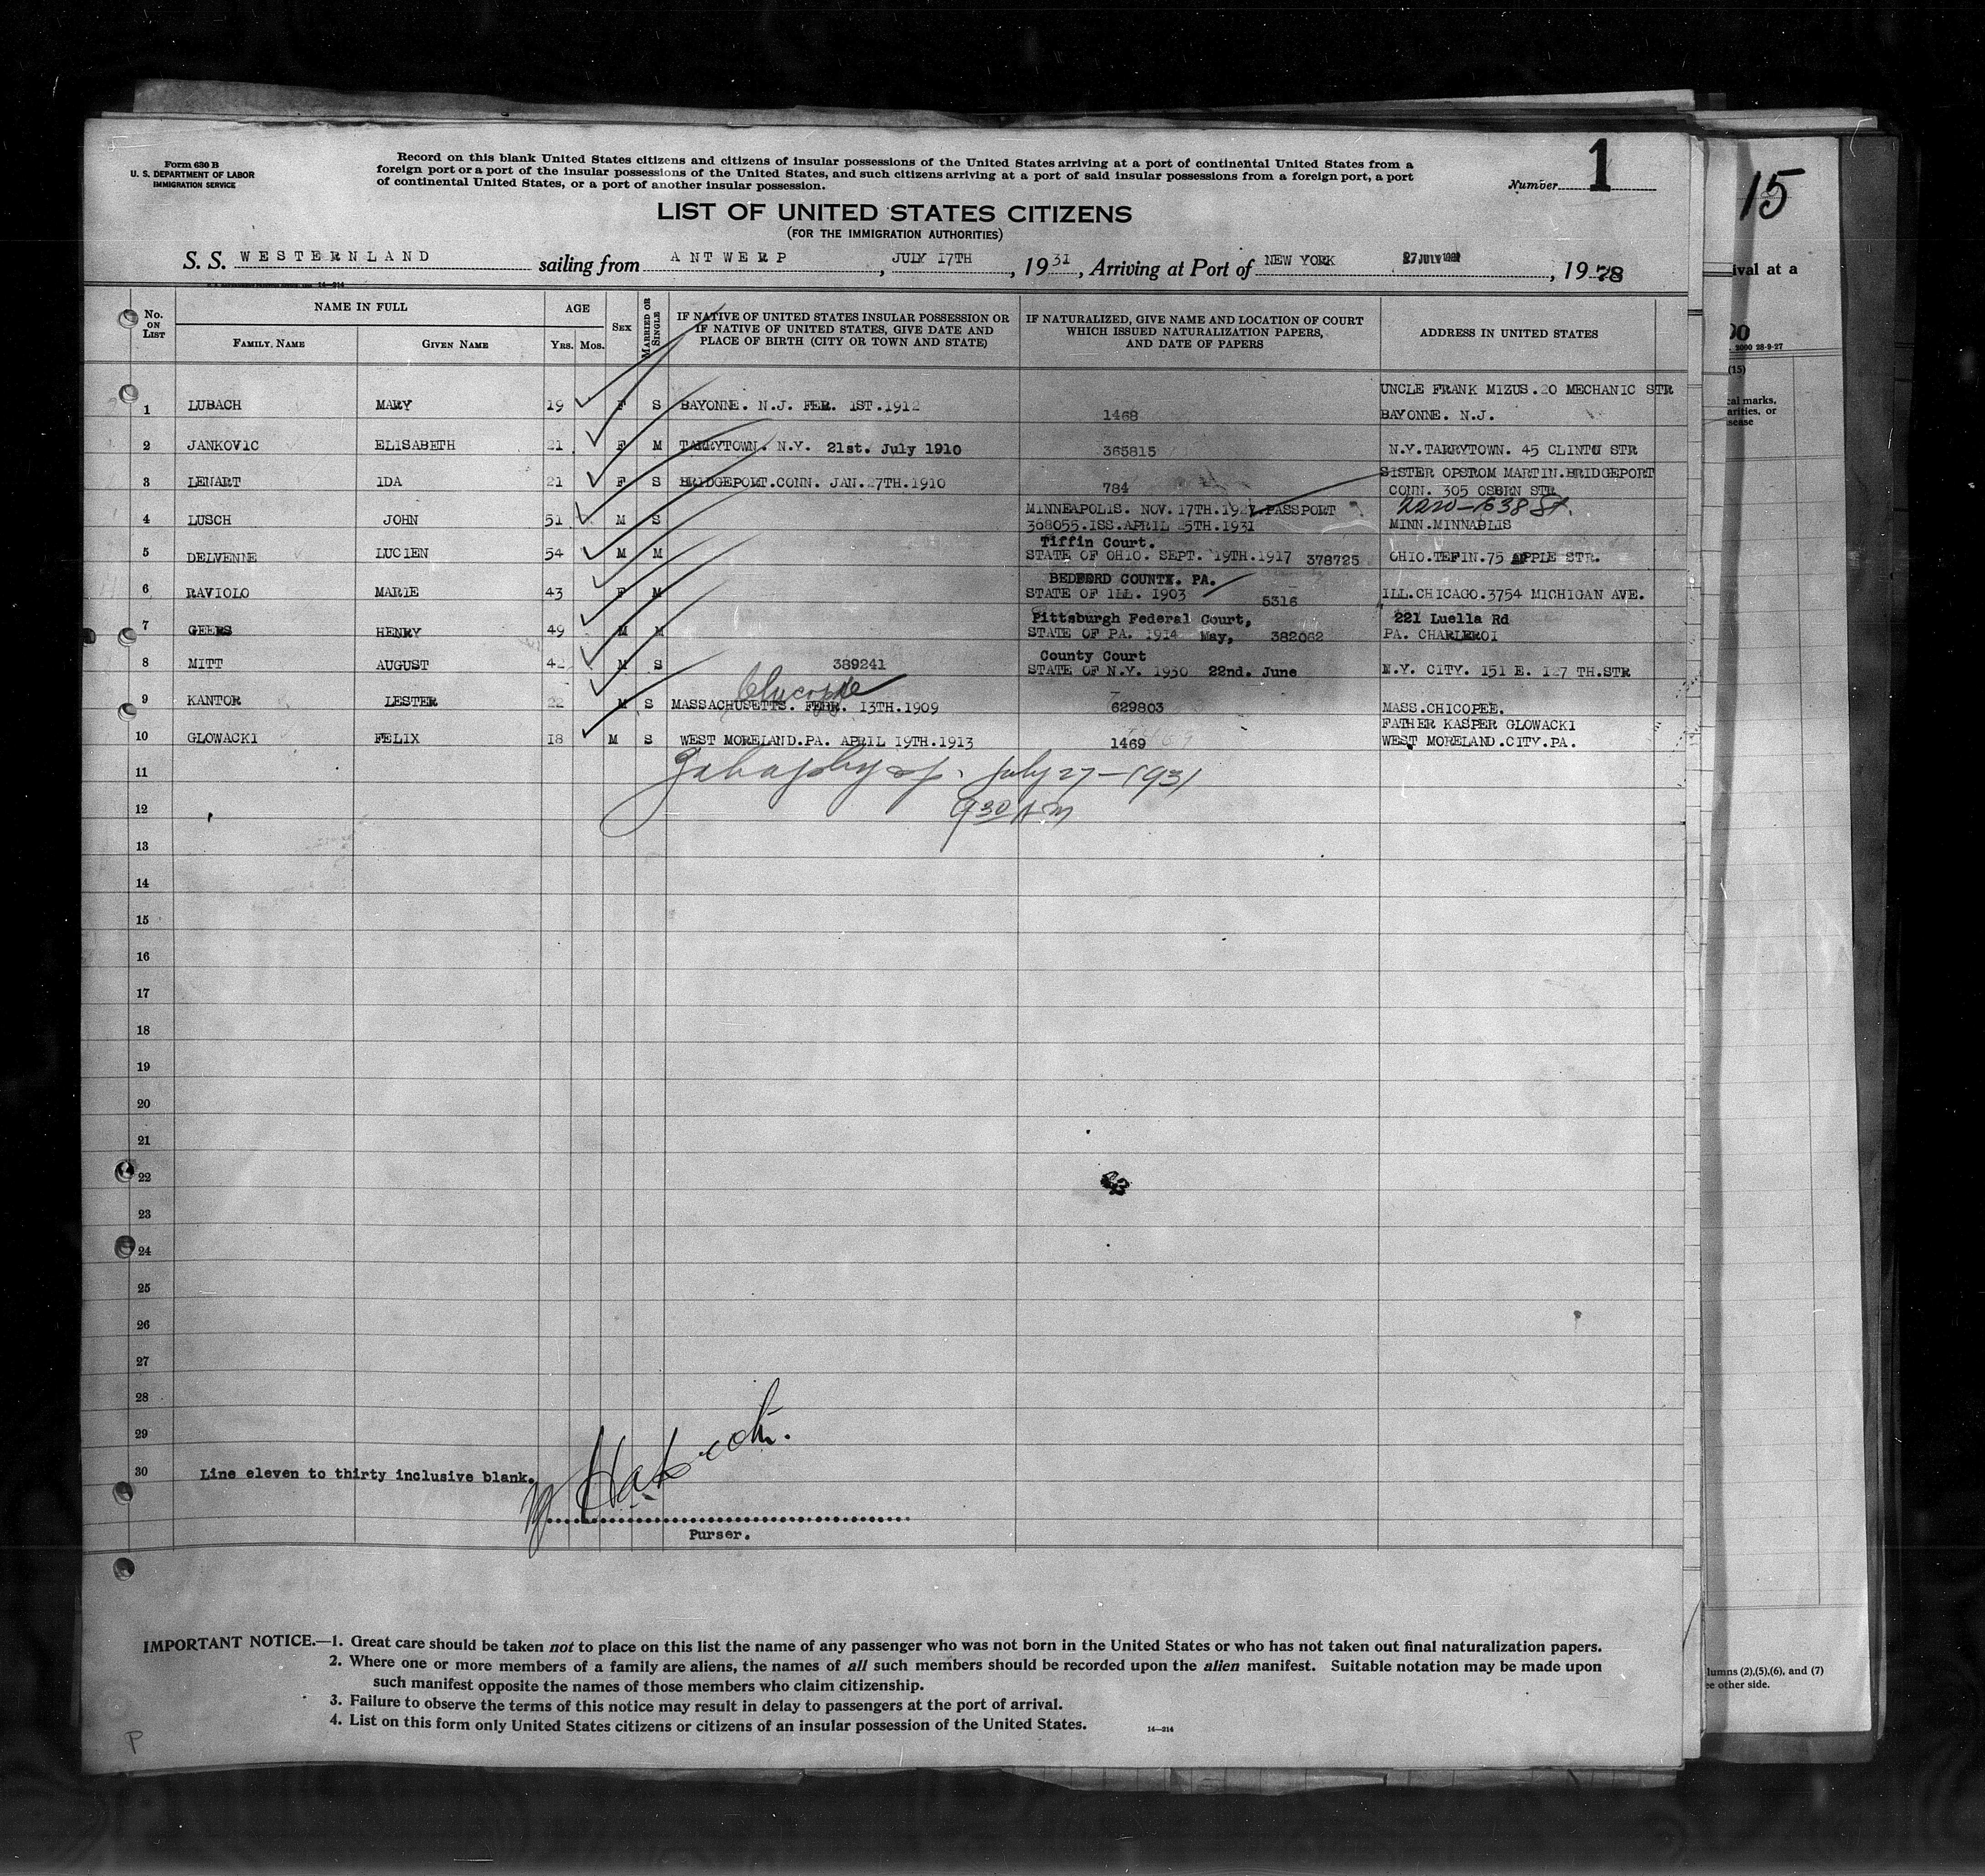 Form 630 B
U. S. DEPARTMENT OF LABOR
IMMIGRATION SERVICE
Record on this blank United States citizens and citizens of insular possessions of the United States arriving at a port of continental United States from a
foreign port or a port of the insular possessions of the United States, and such citizens arriving at a port of said insular possessions from a foreign port, a port
of continental United States, or a port of another insular possession.
Number 1
15
LIST OF UNITED STATES CITIZENS
(FOR THE IMMIGRATION AUTHORITIES)
S. S. WESTERNLAND sailing from ANTWERP, JULY 17TH, 1931, Arriving at Port of NEW YORK 27 JULY 1931, 19
ival at a
No. ON LIST
NAME IN FULL
FAMILY NAME GIVEN NAME
AGE
YRS. MOS.
SEX
MARRIED OR SINGLE
IF NATIVE OF UNITED STATES INSULAR POSSESSION OR
IF NATIVE OF UNITED STATES, GIVE DATE AND
PLACE OF BIRTH (CITY OR TOWN AND STATE)
IF NATURALIZED, GIVE NAME AND LOCATION OF COURT
WHICH ISSUED NATURALIZATION PAPERS,
AND DATE OF PAPERS
ADDRESS IN UNITED STATES
2000 28-9-27
(15)
UNCLE FRANK MIZUS.20 MECHANIC STR
1 LUBACH MARY 19 F S BAYONNE. N.J. FER. 1ST.1912 1468 BAYONNE. N.J.
2 JANKOVIC ELISABETH 21 F M TARRYTOWN. N.Y. 21st. July 1910 365815 N.Y.TARRYTOWN. 45 CLINTU STR
SISTER OPSTROM MARTIN.BRIDGEPORT
3 LENART IDA 21 F S BRIDGEPORT.CONN. JAN.27TH.1910 784 CONN. 305 OSBRN STR
MINNEAPOLIS. NOV. 17TH. PASSPORT
4 LUSCH JOHN 51 M S 368055.ISS.APRIL 25TH.1931 MINN.MINNABLIS
Tiffin Court.
5 DELVENNE LUCIEN 54 M M STATE OF OHIO. SEPT. 19TH.1917 378725 OHIO.TEFIN.75 APPLE STR.
BEDFORD COUNTY. PA.
6 RAVIOLO MARIE 43 F M STATE OF ILL. 1903 5316 ILL.CHICAGO.3754 MICHIGAN AVE.
Pittsburgh Federal Court, 221 Luella Rd
7 GEERS HENRY 49 M M STATE OF PA. 1914 May, 382062 PA. CHARLEROI
County Court
8 MITT AUGUST M S 389241 STATE OF N.Y. 1930 22nd. June N.Y. CITY. 151 E. 127 TH.STR
9 KANTOR LESTER 22 M S MASSACHUSETTS. FEBR. 13TH.1909 629803 MASS.CHICOPEE.
FATHER KASPER GLOWACKI
10 GLOWACKI FELIX 18 M S WEST MORELAND.PA. APRIL 19TH.1913 1469 WEST MORELAND.CITY.PA.
11 July 27-1931
12 9 30 AM
13
14
15
16
17
18
19
20
21
22
23
24
25
26
27
28
29
30 Line eleven to thirty inclusive blank.
Purser.
IMPORTANT NOTICE.—1. Great care should be taken not to place on this list the name of any passenger who was not born in the United States or who has not taken out final naturalization papers.
2. Where one or more members of a family are aliens, the names of all such members should be recorded upon the alien manifest. Suitable notation may be made upon
such manifest opposite the names of those members who claim citizenship.
3. Failure to observe the terms of this notice may result in delay to passengers at the port of arrival.
4. List on this form only United States citizens or citizens of an insular possession of the United States.
14—214
lumns (2),(5),(6), and (7)
ee other side.
P